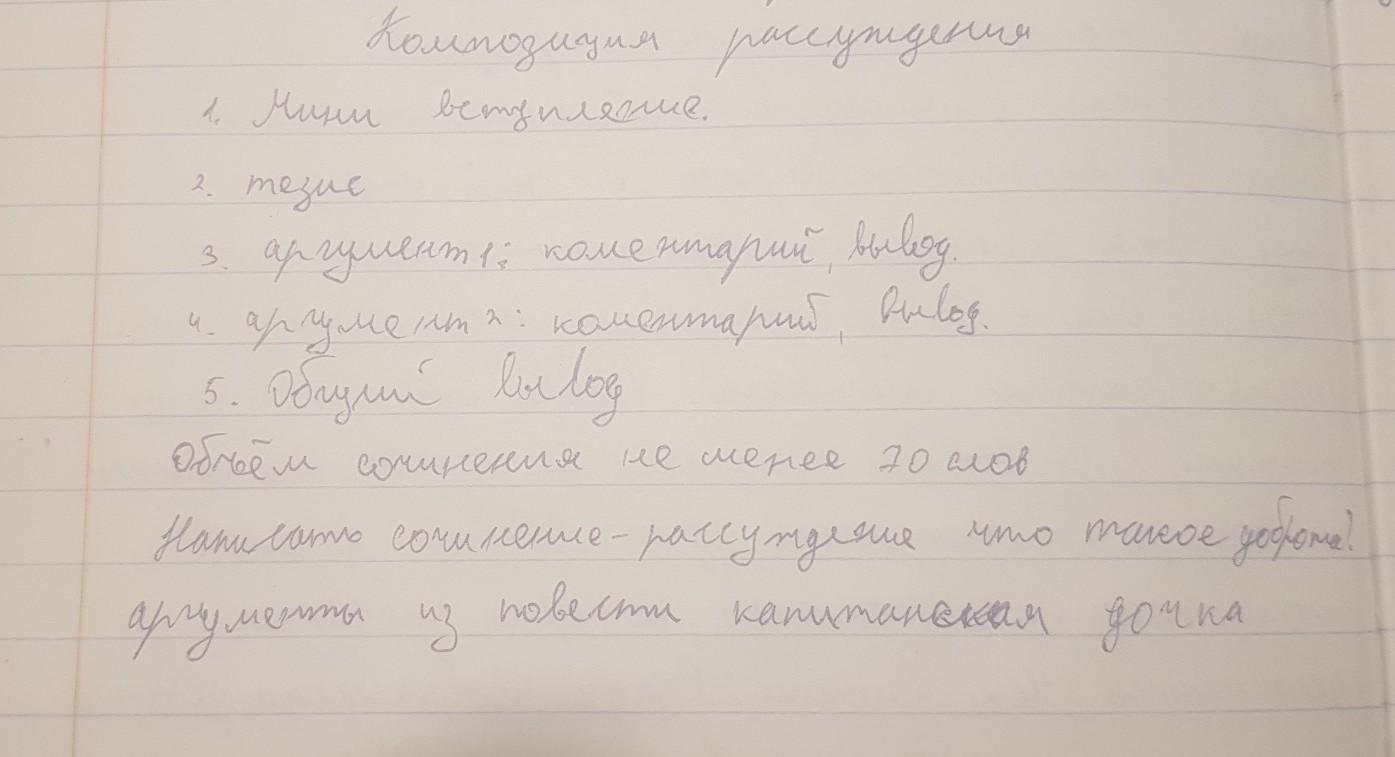 Композиция рассуждения
1. Мини вступление.
2. тезис
3. аргумент 1: коментарий, вывод.
4. аргумент 2: коментарий, вывод.
5. Общий вывод
Объём сочинения не менее 70 слов
Написать сочинение-рассуждение что такое доброта?
аргументы из повести капитанская дочка